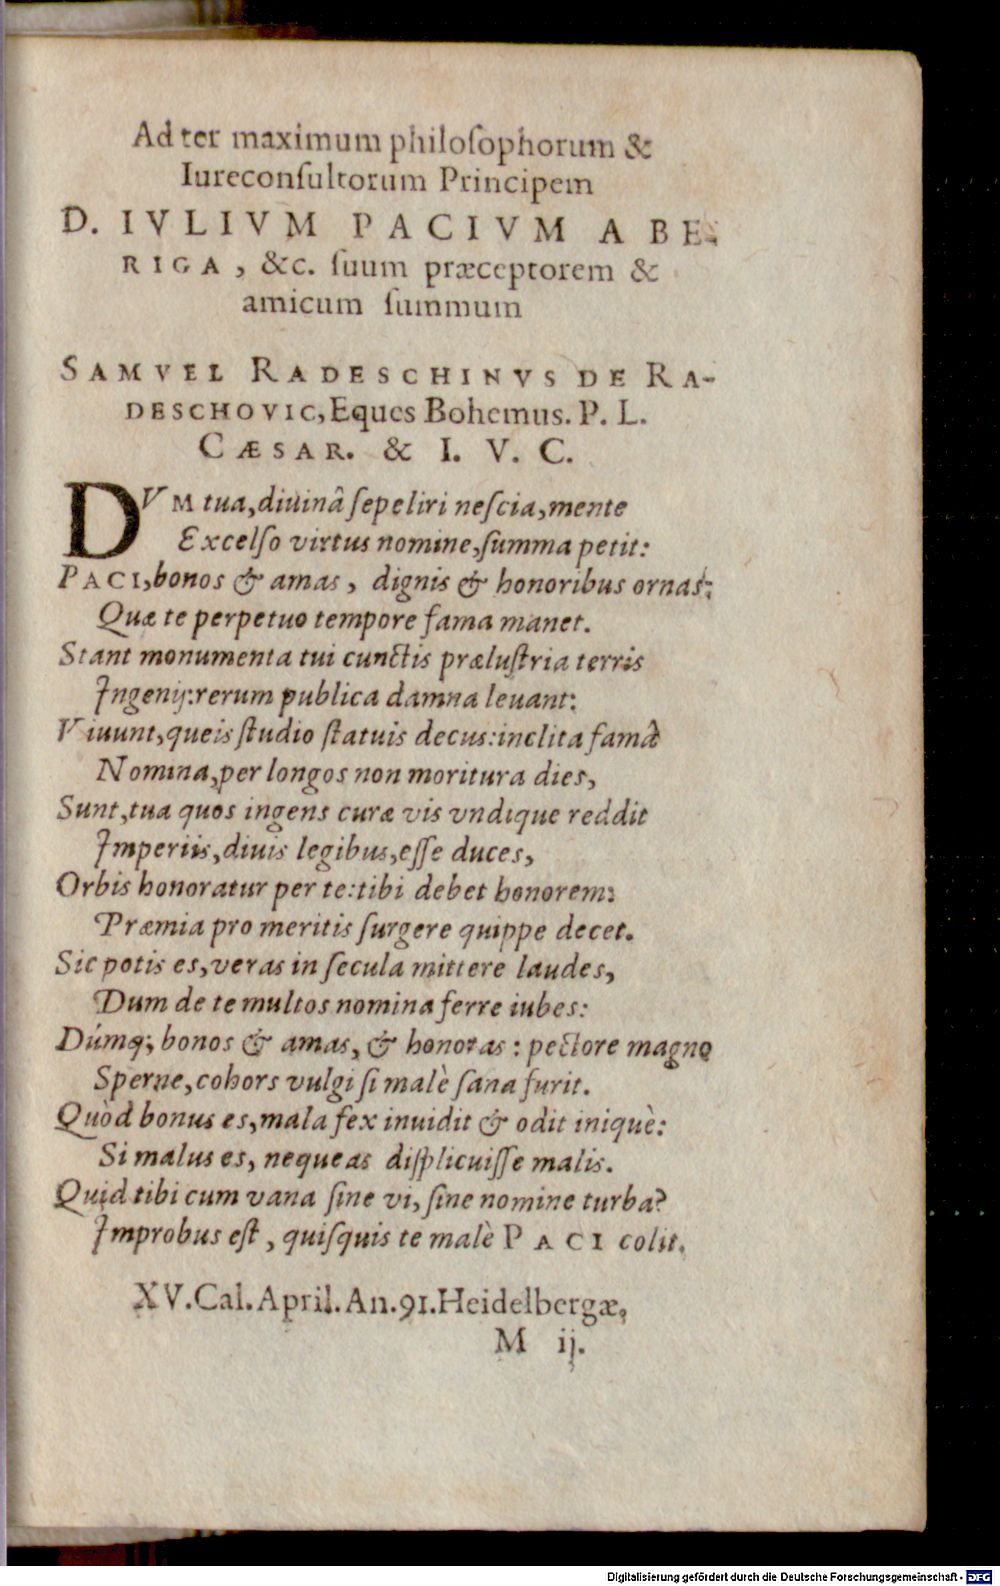 Ad ter maximum philoſophorum &
Iureconſultorum Principem
D. IVLIVM PACIVM A BE-
RIGA, &c. ſuum præceptorem &
amicum ſummum
SAMVEL RADESCHINVS DE RA-
DESCHOVIC, Eques Bohemus. P. L.
CÆSAR. & I. V. C.
DVM tua, diuinâ ſepeliri neſcia, mente
Excelſo virtus nomine, ſumma petit:
PACI, bonos & amas, dignis & honoribus ornas:
Quæ te perpetuo tempore fama manet.
Stant monumenta tui cunctis præluſtria terris
Ingenij: rerum publica damna leuant:
Viuunt, queis ſtudio ſtatuis decus: inclita famâ
Nomina, per longos non moritura dies,
Sunt, tua quos ingens curæ vis vndique reddit
Imperiis, diuis legibus, eſſe duces,
Orbis honoratur per te: tibi debet honorem:
Præmia pro meritis ſurgere quippe decet.
Sic potis es, veras in ſecula mittere laudes,
Dum de te multos nomina ferre iubes:
Dúmq; bonos & amas, & honoras: pectore magno
Sperne, cohors vulgi ſi malè ſana furit.
Quòd bonus es, mala fex inuidit & odit iniquè:
Si malus es, nequeas diſplicuiſſe malis.
Quid tibi cum vana ſine vi, ſine nomine turba?
Improbus eſt, quiſquis te malè PACI colit.
XV. Cal. April. An. 91. Heidelbergæ,
M ij.
Digitalisierung gefördert durch die Deutsche Forschungsgemeinschaft - DFG